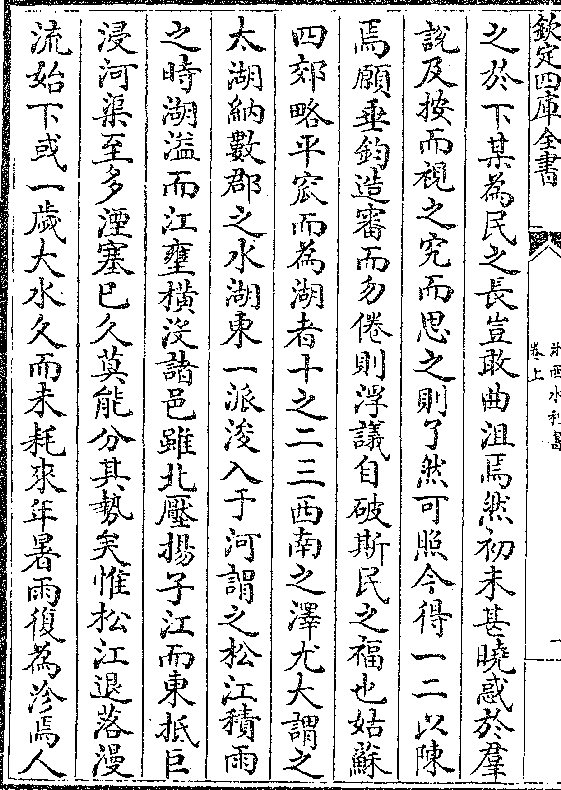 欽定四庫全書
浙西水利書
卷上
一
之於下某為民之長豈敢曲沮焉然初未甚曉惑於羣
說及按而視之究而思之則了然可照今得一二以陳
焉願垂鈞造審而勿倦則浮議自破斯民之福也姑蘇
四郊略平窊而為湖者十之二三西南之澤尤大謂之
太湖納數郡之水湖東一派浚入于河謂之松江積雨
之時湖溢而江壅橫沒諸邑雖北壓揚子江而東抵巨
浸河渠至多湮塞已久莫能分其勢矣惟松江退落漫
流始下或一歲大水久而未耗來年暑雨復為沴焉人